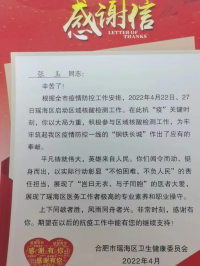 感谢信
LETTER OF THANKS
同志：
辛苦了！
根据全市疫情防控工作安排，2022年4月22日、
27日瑞海区启动区域核酸检测工作。在此抗“疫”关键时
刻，你以大局为重，积极参与区域核酸检测工作，为牢
牢筑起我区疫情防控一线的“钢铁长城”作出了应有的
奉献。
平凡铸就伟大，英雄来自人民。你们闻令而动、挺
身而出，以实际行动彰显“不怕困难、不负人民”的责
任担当，展现了“岂曰无衣、与子同袍”的医者大爱，
展现了瑶海区医务工作者极高的专业素养和职业操守。
上下同欲者胜，风雨同舟者兴。非常时刻，感谢有
你。期望在以后的疫控工作中能有您的继续支持！
合肥市瑶海区卫生健康委员会
2022年4月